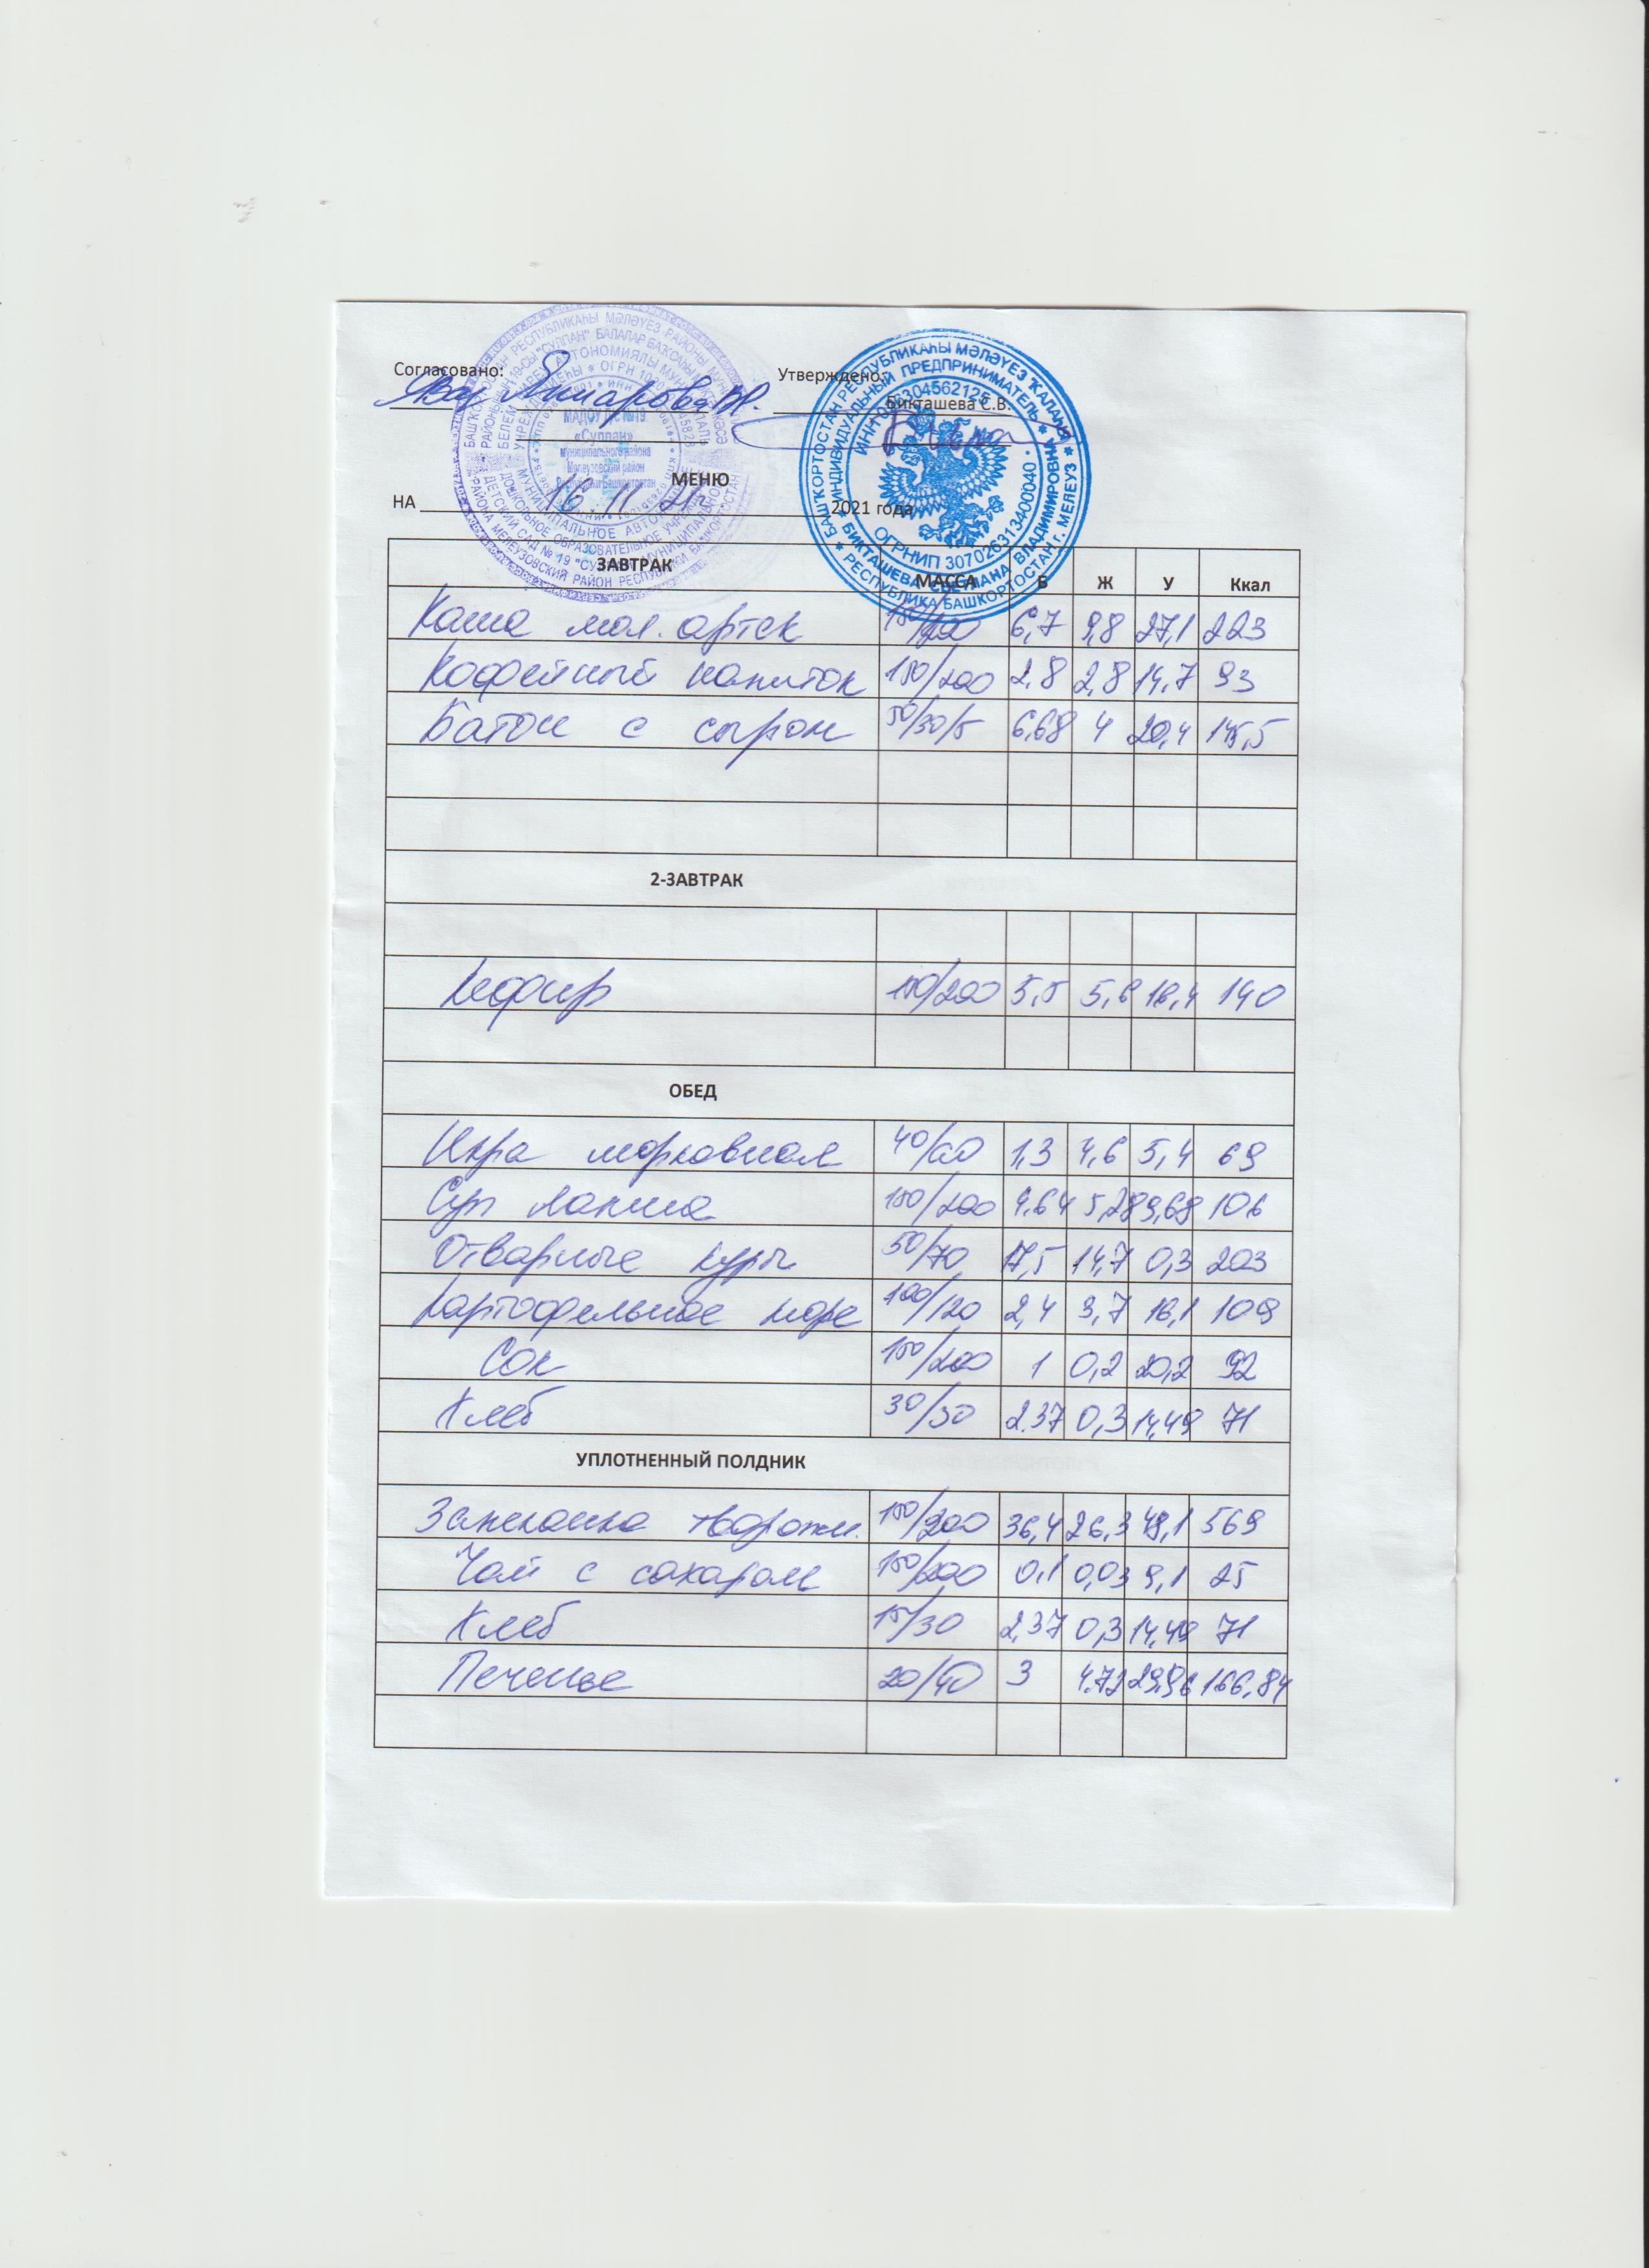 Согласовано: Утверждено:
Бикташева С.В.
МАДОУ Д/с №19
«Сулпан»
муниципального района
Мелеузовский район
Республики Башкортостан
БАШҠОРТОСТАН РЕСПУБЛИКАҺЫ МӘЛӘҮЕЗ ҠАЛАҺЫ
ИНДИВИДУАЛЬНЫЙ ПРЕДПРИНИМАТЕЛЬ
БИКТАШЕВА СВЕТЛАНА ВЛАДИМИРОВНА
РЕСПУБЛИКА БАШКОРТОСТАН, Г. МЕЛЕУЗ
ОГРНИП 307026313400040
МЕНЮ
НА 16. 11. 21г 2021 года
ЗАВТРАК МАССА Б Ж У Ккал
Каша мол. артек 150/200 6,7 9,8 27,1 223
Кофейный напиток 150/200 2,8 2,8 14,7 93
Батон с сыром 50/30/5 6,68 4 20,4 145,5
2-ЗАВТРАК
Кефир 150/200 5,5 5,6 18,4 140
ОБЕД
Икра морковная 40/60 1,3 4,6 5,4 69
Суп лапша 150/200 4,64 5,28 9,68 106
Отварные куры 50/70 17,5 14,7 0,3 203
Картофельное пюре 100/120 2,4 3,7 16,1 109
Сок 150/200 1 0,2 20,2 92
Хлеб 30/50 2.37 0,3 14,49 71
УПЛОТНЕННЫЙ ПОЛДНИК
Запеканка творожн. 150/200 36,4 26,3 48,1 569
Чай с сахаром 150/200 0,1 0,03 9,1 25
Хлеб 15/30 2,37 0,3 14,49 71
Печенье 20/40 3 4,72 29,96 166,84